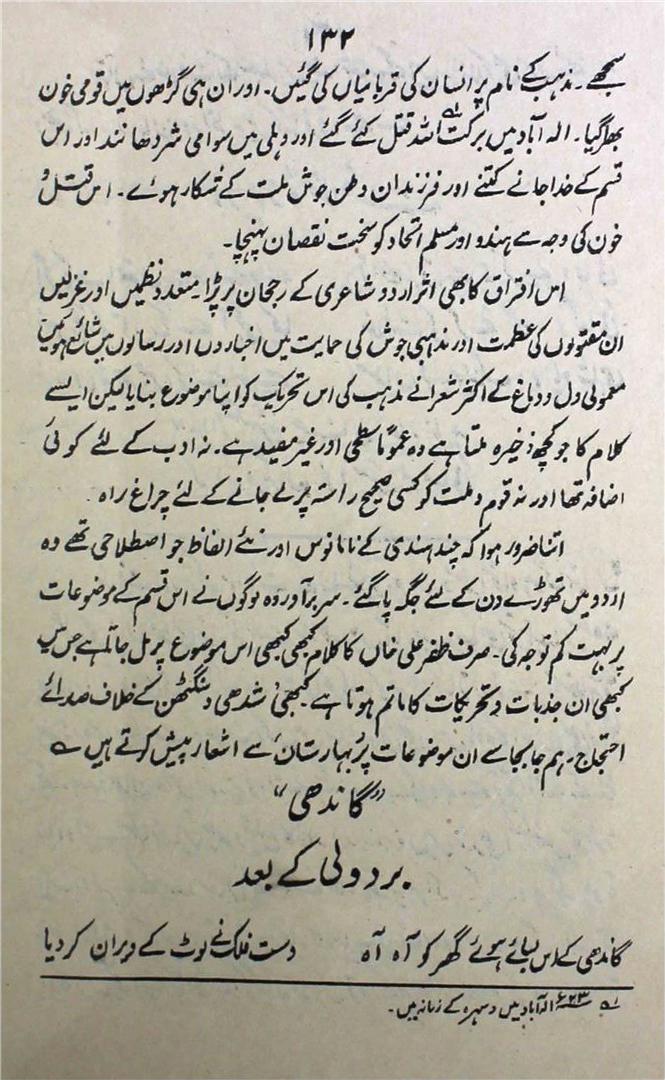 ۱۳۲
سمجھے۔ مذہب کے نام پر انسان کی قربانیاں کی گئیں۔ اور ان ہی گڑھوں میں قومی خون
بھرا گیا۔ الہ آباد میں برکت اللہ قتل کئے گئے اور دہلی میں سوامی شردھانند اور اس
قسم کے خدا جانے کتنے اور فرزندان وطن جوش ملت کے شکار ہوئے۔ اس قتل و
خون کی وجہ سے ہندو اور مسلم اتحاد کو سخت نقصان پہنچا۔
اس افراق کا بھی اثر اردو شاعری کے رجحان پر پڑا متعدد نظمیں اور غزلیں
ان مقتولوں کی عظمت اور مذہبی جوش کی حمایت میں اخباروں اور رسالوں میں شائع ہوئیں
معمولی دل و دماغ کے اکثر شعرا نے مذہب کی اس تحریک کو اپنا موضوع بنایا لیکن ایسے
کلام کا جو کچھ ذخیرہ ملتا ہے وہ عموماً سطحی اور غیر مفید ہے۔ نہ ادب کے لئے کوئی
اضافہ تھا اور نہ قوم و ملت کو کسی صحیح راستہ پر لے جانے کے لئے چراغ راہ۔
اتنا ضرور ہوا کہ چند ہندی کے نامانوس اور نئے الفاظ جو اصطلاحی تھے وہ
اردو میں تھوڑے دن کے لئے جگہ پا گئے۔ سربرآوردہ لوگوں نے اس قسم کے موضوعات
پر بہت کم توجہ کی۔ صرف ظفر علی خاں کا کلام کبھی کبھی اس موضوع پر مل جاتا ہے جس میں
کبھی ان جذبات و تحریکات کا ماتم ہوتا ہے کبھی شدھی و سنگٹھن کے خلاف صدائے
احتجاج۔ ہم جا بجا سے ان موضوعات پر بہارستان سے اشعار پیش کرتے ہیں ؎
”گاندھی“
بردولی کے بعد
گاندھی کے اس بسائے ہوئے گھر کو آہ آہ دست فلک نے لوٹ کے ویران کر دیا
لہ ۲۳ء الہ آباد میں دسہرہ کے زمانہ میں۔